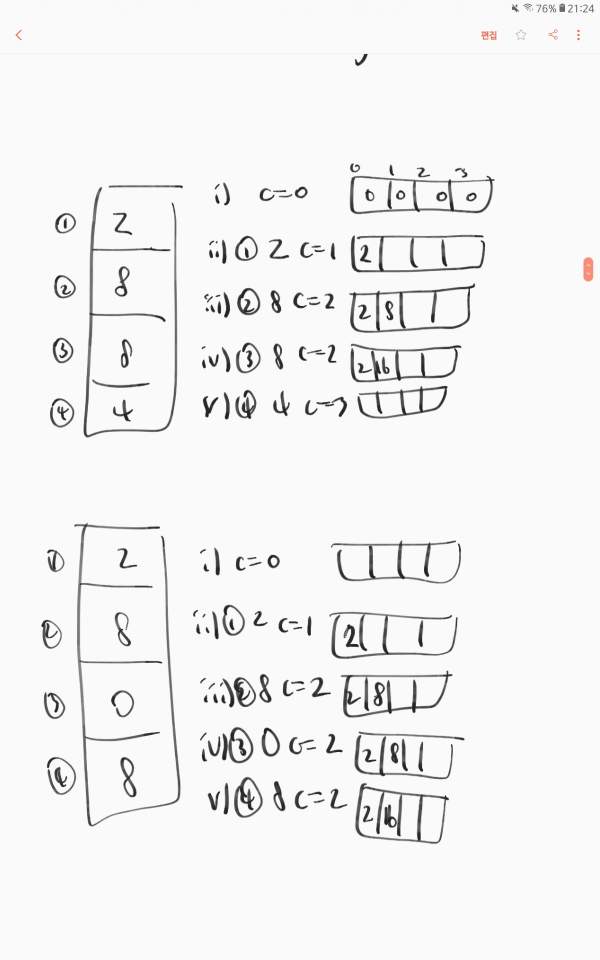 76% 21:24
편집
0 1 2 3
i) c=0 0 0 0 0
① 2 ii) ① 2 c=1 2
② 8 iii) ② 8 c=2 2 8
③ 8 iv) ③ 8 c=2 2 16
④ 4 v) ④ 4 c=3
① 2 i) c=0
② 8 ii) ① 2 c=1 2
iii) ② 8 c=2 2 8
③ 0 iv) ③ 0 c=2 2 8
④ 8 v) ④ 8 c=2 2 16